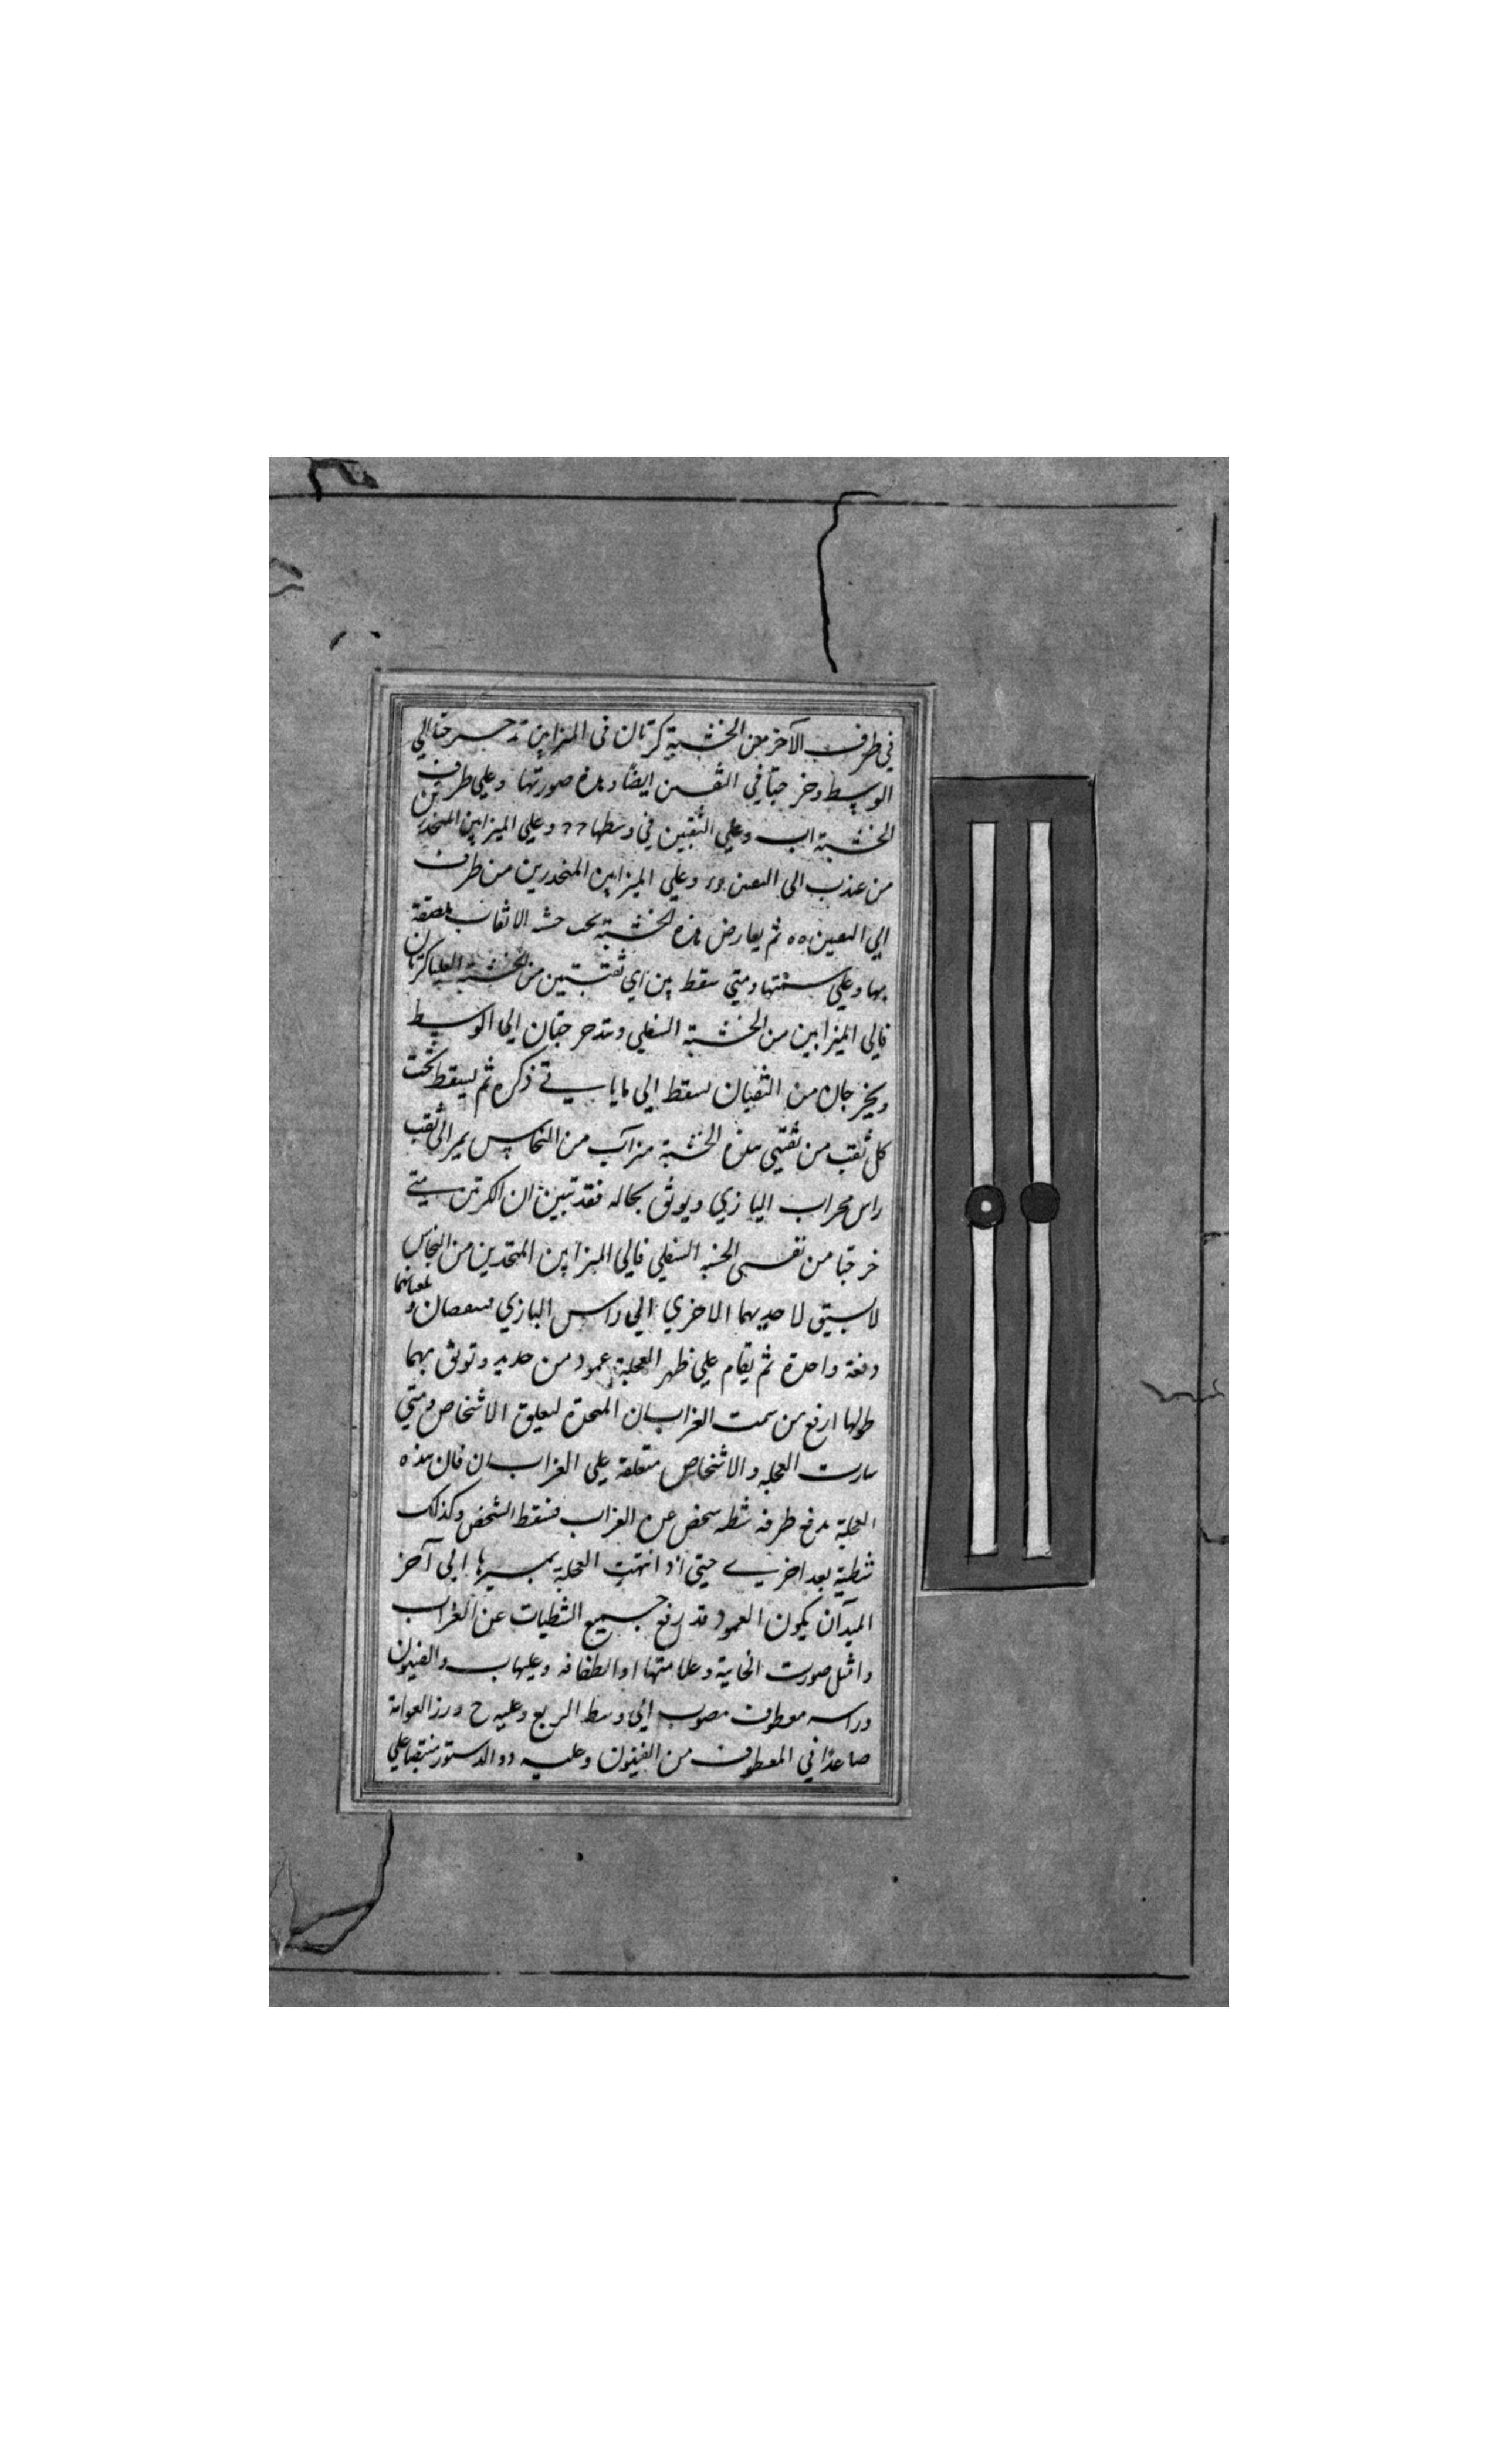 في طرف الآخر من الخشبة كرتان في الميزابين تدحرجتا الي
الوسط وخرجتا في الثقبين ايضا وهذه صورتها وعلي طرفي
الخشبة اب وعلي الثقبين في وسطها وعلي الميزابين المنحدرين
من عذب الي وعلي الميزابين المنحدرين من طرف
الي ثم يعارض هذه الخشبة تحت الاثقاب ملصقة
بها وعلي سمتها ومتي سقط من اي ثقبتين من الخشبة العليا كرتان
فالي الميزابين من الخشبة السفلي وتتدحرجتان الي الوسط
ويخرجان من الثقبان يسقط الي ما ياتي ذكره ثم يسقط تحت
كل ثقب من ثقبتي هذه الخشبة ميزاب من النحاس يمر الي ثقب
راس محراب البازي ويوثق بحاله فقد تبين ان الكرتين متي
خرجتا من الخشبة السفلي فالي الميزابين المتحدين من النحاس
لا يسبق لاحديهما الاخري الي راس البازي
دفعة واحدة ثم يقام علي ظهر العجلة عمود من حديد وتوثق بهما
طولها ارفع من سمت الغرابان المتحدة لتعليق الاشخاص ومتي
سارت العجلة والاشخاص متعلقة علي الغرابان فان هذه
العجلة يدفع طرفه شخص عن الغراب فيسقط الشخص وكذلك
شطية بعد اخري حتي اذا انتهت العجلة بمسيرها الي آخر
الميدان يكون العمود قد رفع جميع الشطيات عن الغراب
وامثل صورت الخابية وعلامتها ا والطفافه وعليها ب والفيثون
وراسه معطوف مصوب الي وسط الربع وعليه ح وزر العوامة
صاعدا في المعطوف من الفيثون وعليه د والدستور منتصبا علي